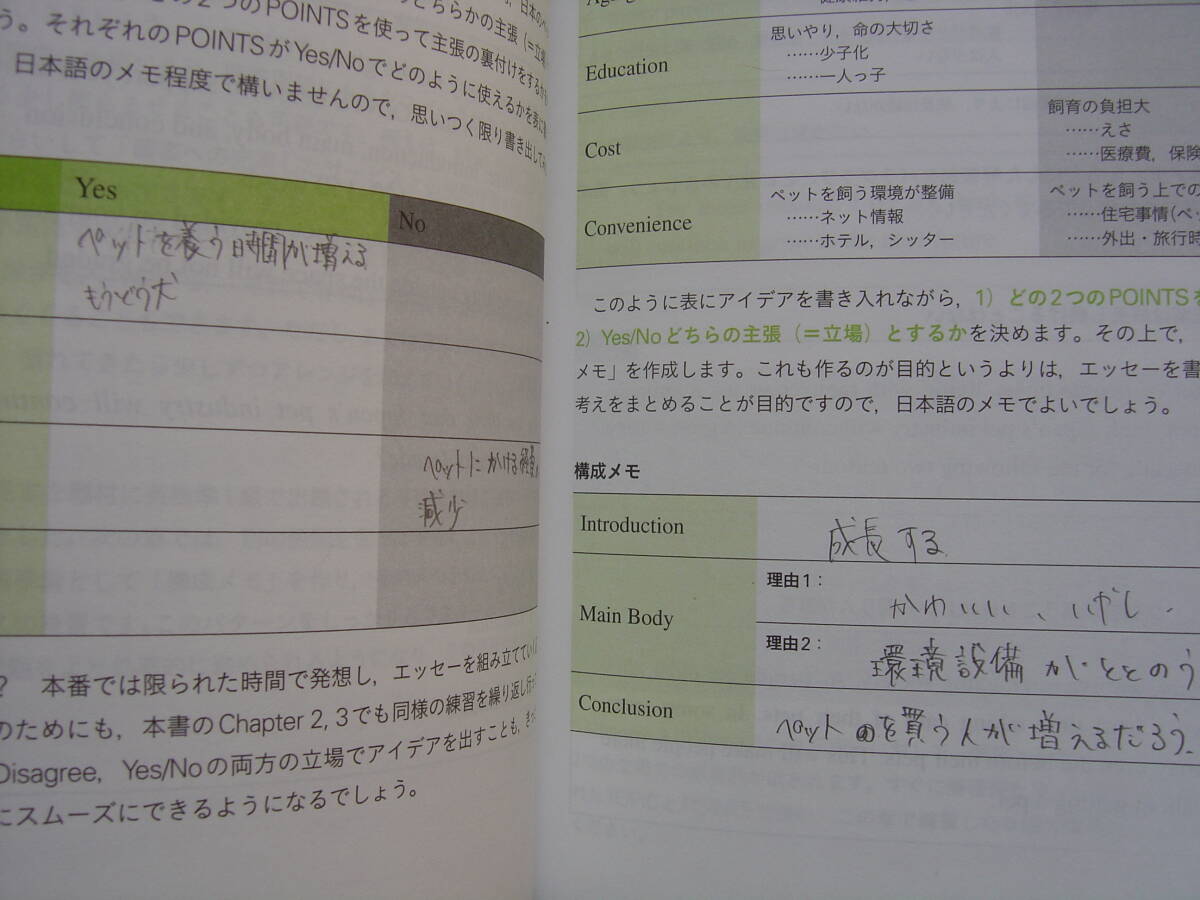 の2つのPOINTSを使って主張の裏付けをするか
う。それぞれのPOINTSがYes/Noでどのように使えるかを表に
日本語のメモ程度で構いませんので，思いつく限り書き出して
Yes
No
ペットを養う時間が増える
もうどう犬
ペットにかける
減少
? 本番では限られた時間で発想し，エッセーを組み立てて
のためにも，本書のChapter 2, 3でも同様の練習を繰り返し行
Disagree，Yes/Noの両方の立場でアイデアを出すことも，
にスムーズにできるようになるでしょう。
Education
思いやり，命の大切さ
……少子化
……一人っ子
Cost
飼育の負担大
……えさ
……医療費，保険
Convenience
ペットを飼う環境が整備
……ネット情報
……ホテル，シッター
ペットを飼う上での
……住宅事情(ペッ
……外出・旅行時
このように表にアイデアを書き入れながら，1) どの2つのPOINTSを
2) Yes/Noどちらの主張（＝立場）とするかを決めます。その上で，
メモ」を作成します。これも作るのが目的というよりは，エッセーを書
考えをまとめることが目的ですので，日本語のメモでよいでしょう。
構成メモ
Introduction
成長する
Main Body
理由1：
かわいい、いやし.
理由2：
環境設備がととのう
Conclusion
ペットを買う人が増えるだろう.